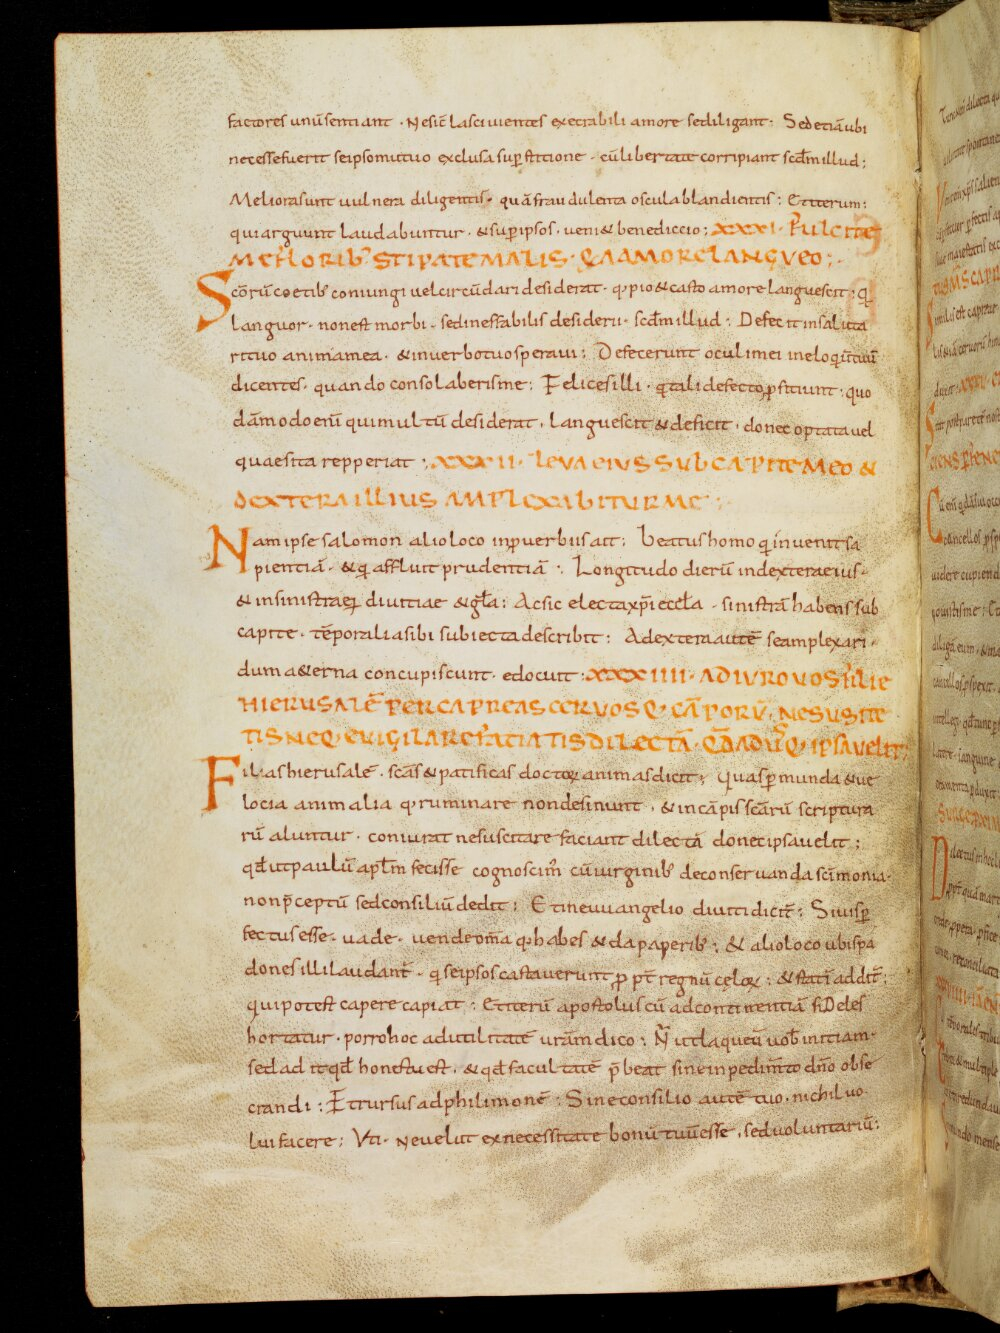 factores unū sentiant · Nesic̄ lascivientes execrabili amore sediligant : Sedetiā ubi
necesse fuerit seipso mutuo exclusa sup̄stitione · cū libertate corripiant scd̄m illud ;
Meliora sunt vulnera diligentis · quā fraudulenta oscula blandientis : Et iterum :
qui arguunt laudabuntur · & sup̄ ipsos · veni& benediccio ; XXXI · Fulcite
me florib; stipate malis · q̄a amore langueo ;
Scōrū coetib; coniungi vel circūdari desiderat · q; pio & casto amore languescit ; q̄
languor · non est morbi · sed ineffabilis desiderii · scd̄m illud : Defecit in saluta
ri tuo anima mea · & in verbo tuo speravi : Defecerunt oculi mei in eloquiū tuū
dicentes · quando consolaberis me : Felices illi · q̄ tali defecto p̄ficiunt · quo
dāmodo enī qui multū desiderat · languescit & deficit · donec optata vel
quaesita repperiat ; XXXII · Leva eius sub capite meo &
dextera illius amplexabitur me ;
Nam ipse salomon alio loco in p̄verbiis ait : beatus homo q̄ invenit sa
pientiā · & q̄ affluit prudentiā : Longitudo dierū in dextera eius ·
& in sinistra ei divitiae & gl̄a : Ac sic electa xp̄i eccl̄a · sinistrā habens sub
capite · tēporalia sibi subiecta describit : A dextera autē se amplexari ·
dum a&erna concupiscunt · edocuit : XXXIIII · Adiuro vos filie
hierusalē per capreas cervosq; cāporū · ne suscite
tis neq; evigilare faciatis dilectā · q̄adusq; ipsa velit ;
Filias hierusalē · scās & pacificas doctor animas dicit ; Quasp̄ munda & ve
locia animalia q; ruminare non desinunt · & in cāpis scārū scriptura
rū aluntur · coniurat ne suscitare faciant dilectā donec ipsa velit ;
qd̄ ut paulū apl̄m fecisse cognoscim; cū virginib; de conservanda scīmonia ·
non p̄ceptū sed consiliū dedit : Et in evvangelio diviti dicit̄ : Si vis p̄
fectus esse · vade · vende om̄a q; habes & da paperib; : & alio loco ubi spa
dones illi laudant̄ · q̄ seipsos castaverunt p̄ pt̄ regnū celor̄ : & statī addit̄ :
qui potest capere capiat : Et iterū apostolus cū ad continentiā fideles
hortatur · porro hoc ad utilitatē vr̄am dico : N̄ ut laqueū vob̄ initiam ·
sed ad it qd̄ honestū est · & qd̄ facultatē p̄beat sine inpedim̄to dn̄o obse
crandi : Et rursus ad philimonē : Sine consilio autē tuo · nichil vo
lui facere ; Uti · Ne velut ex necessitate bonū tuū esse · sed voluntariū :